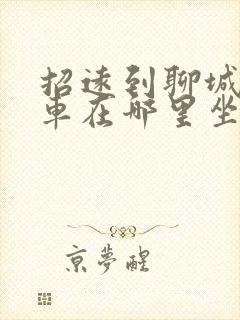 招远到聊城
车在哪里坐
京夢醒